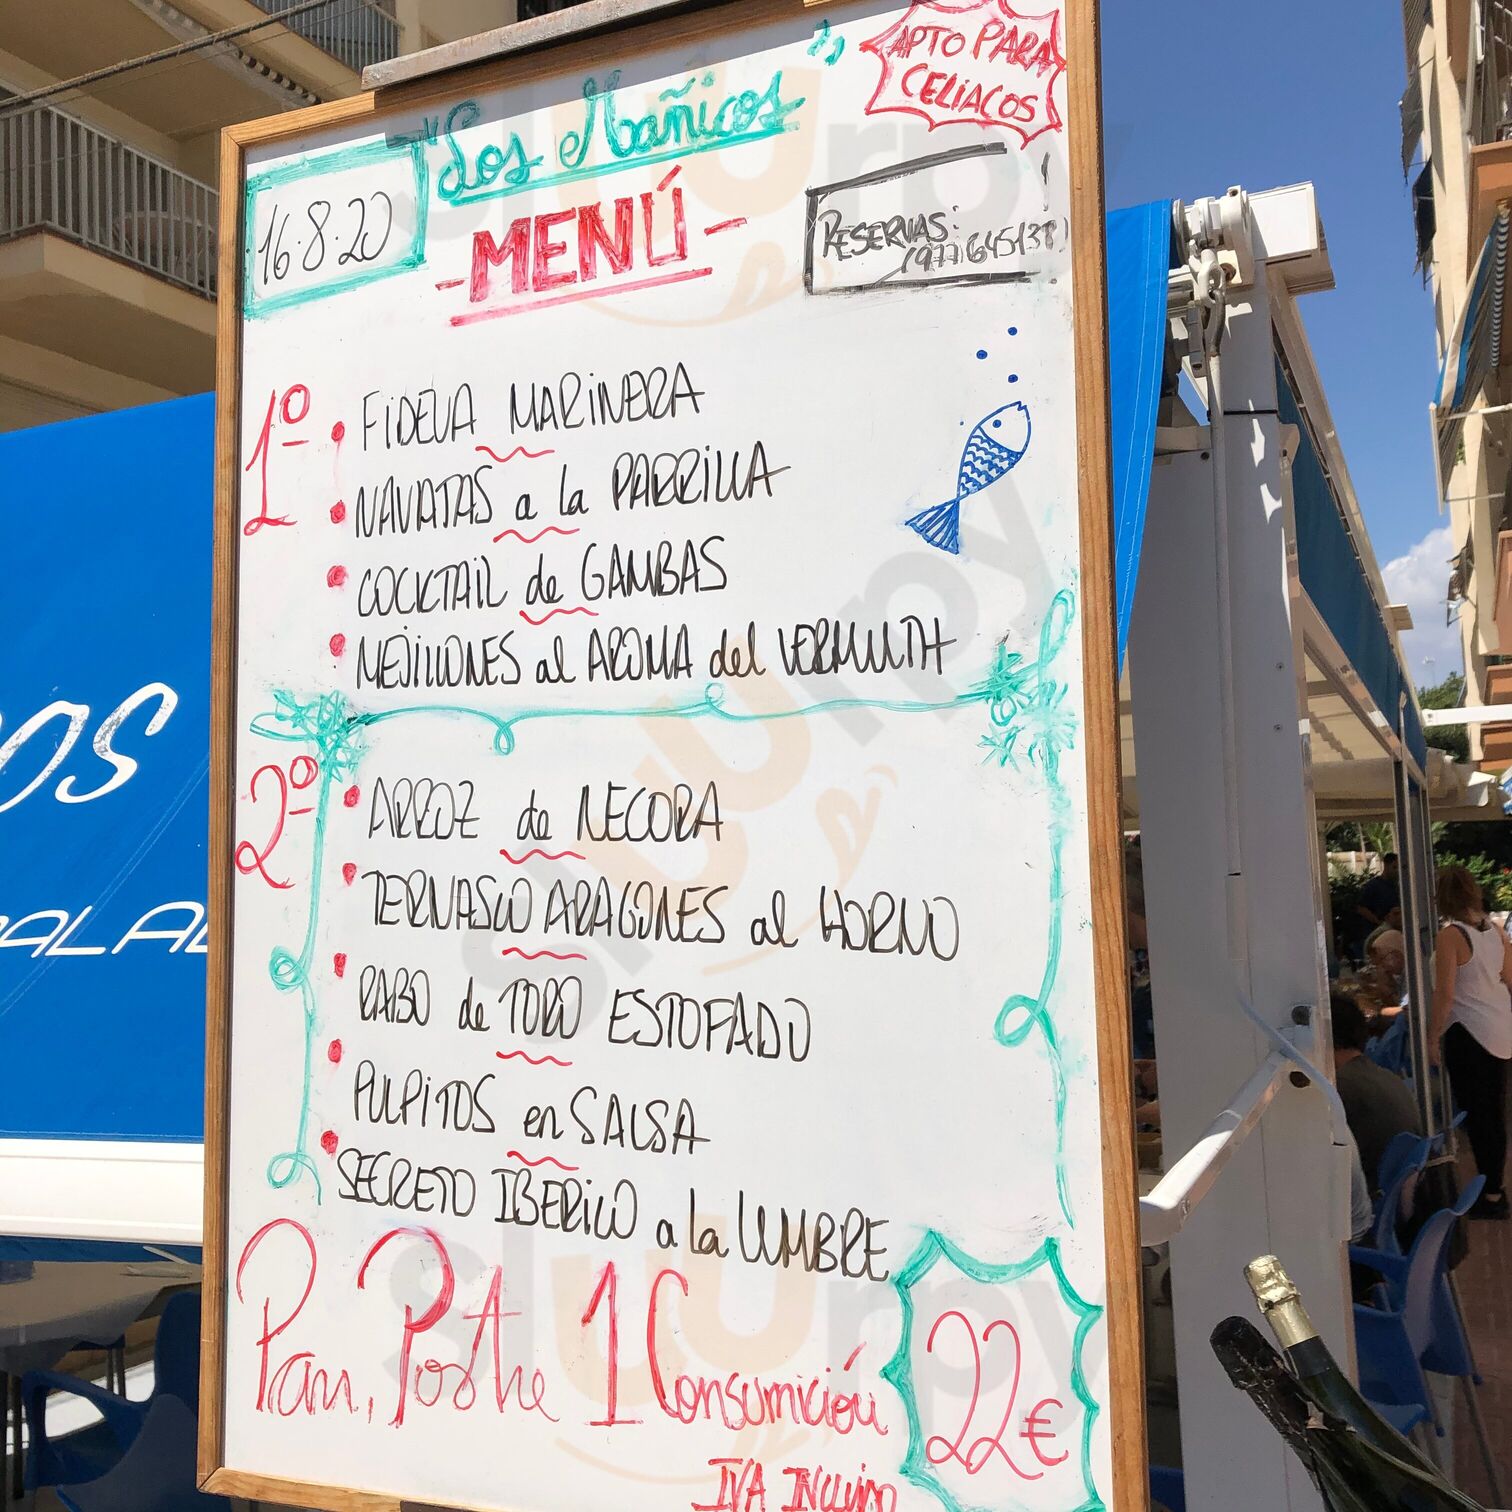 APTO PARA
CELIACOS
"Los Mañicos"
16.8.20
-MENÚ-
RESERVAS:
(977)645138
1º
• FIDEUA MARINERA
• NAVAJAS a la PARRILLA
• COCKTAIL de GAMBAS
• MEJILLONES al AROMA del VERMUTH
2º
• ARROZ de NECORA
• TERNASCO ARAGONES al HORNO
• RABO de TORO ESTOFADO
• PULPITOS en SALSA
• SECRETO IBERICO a la LUMBRE
Pan, Postre 1 Consumición
22€
IVA INCLUIDO
OS